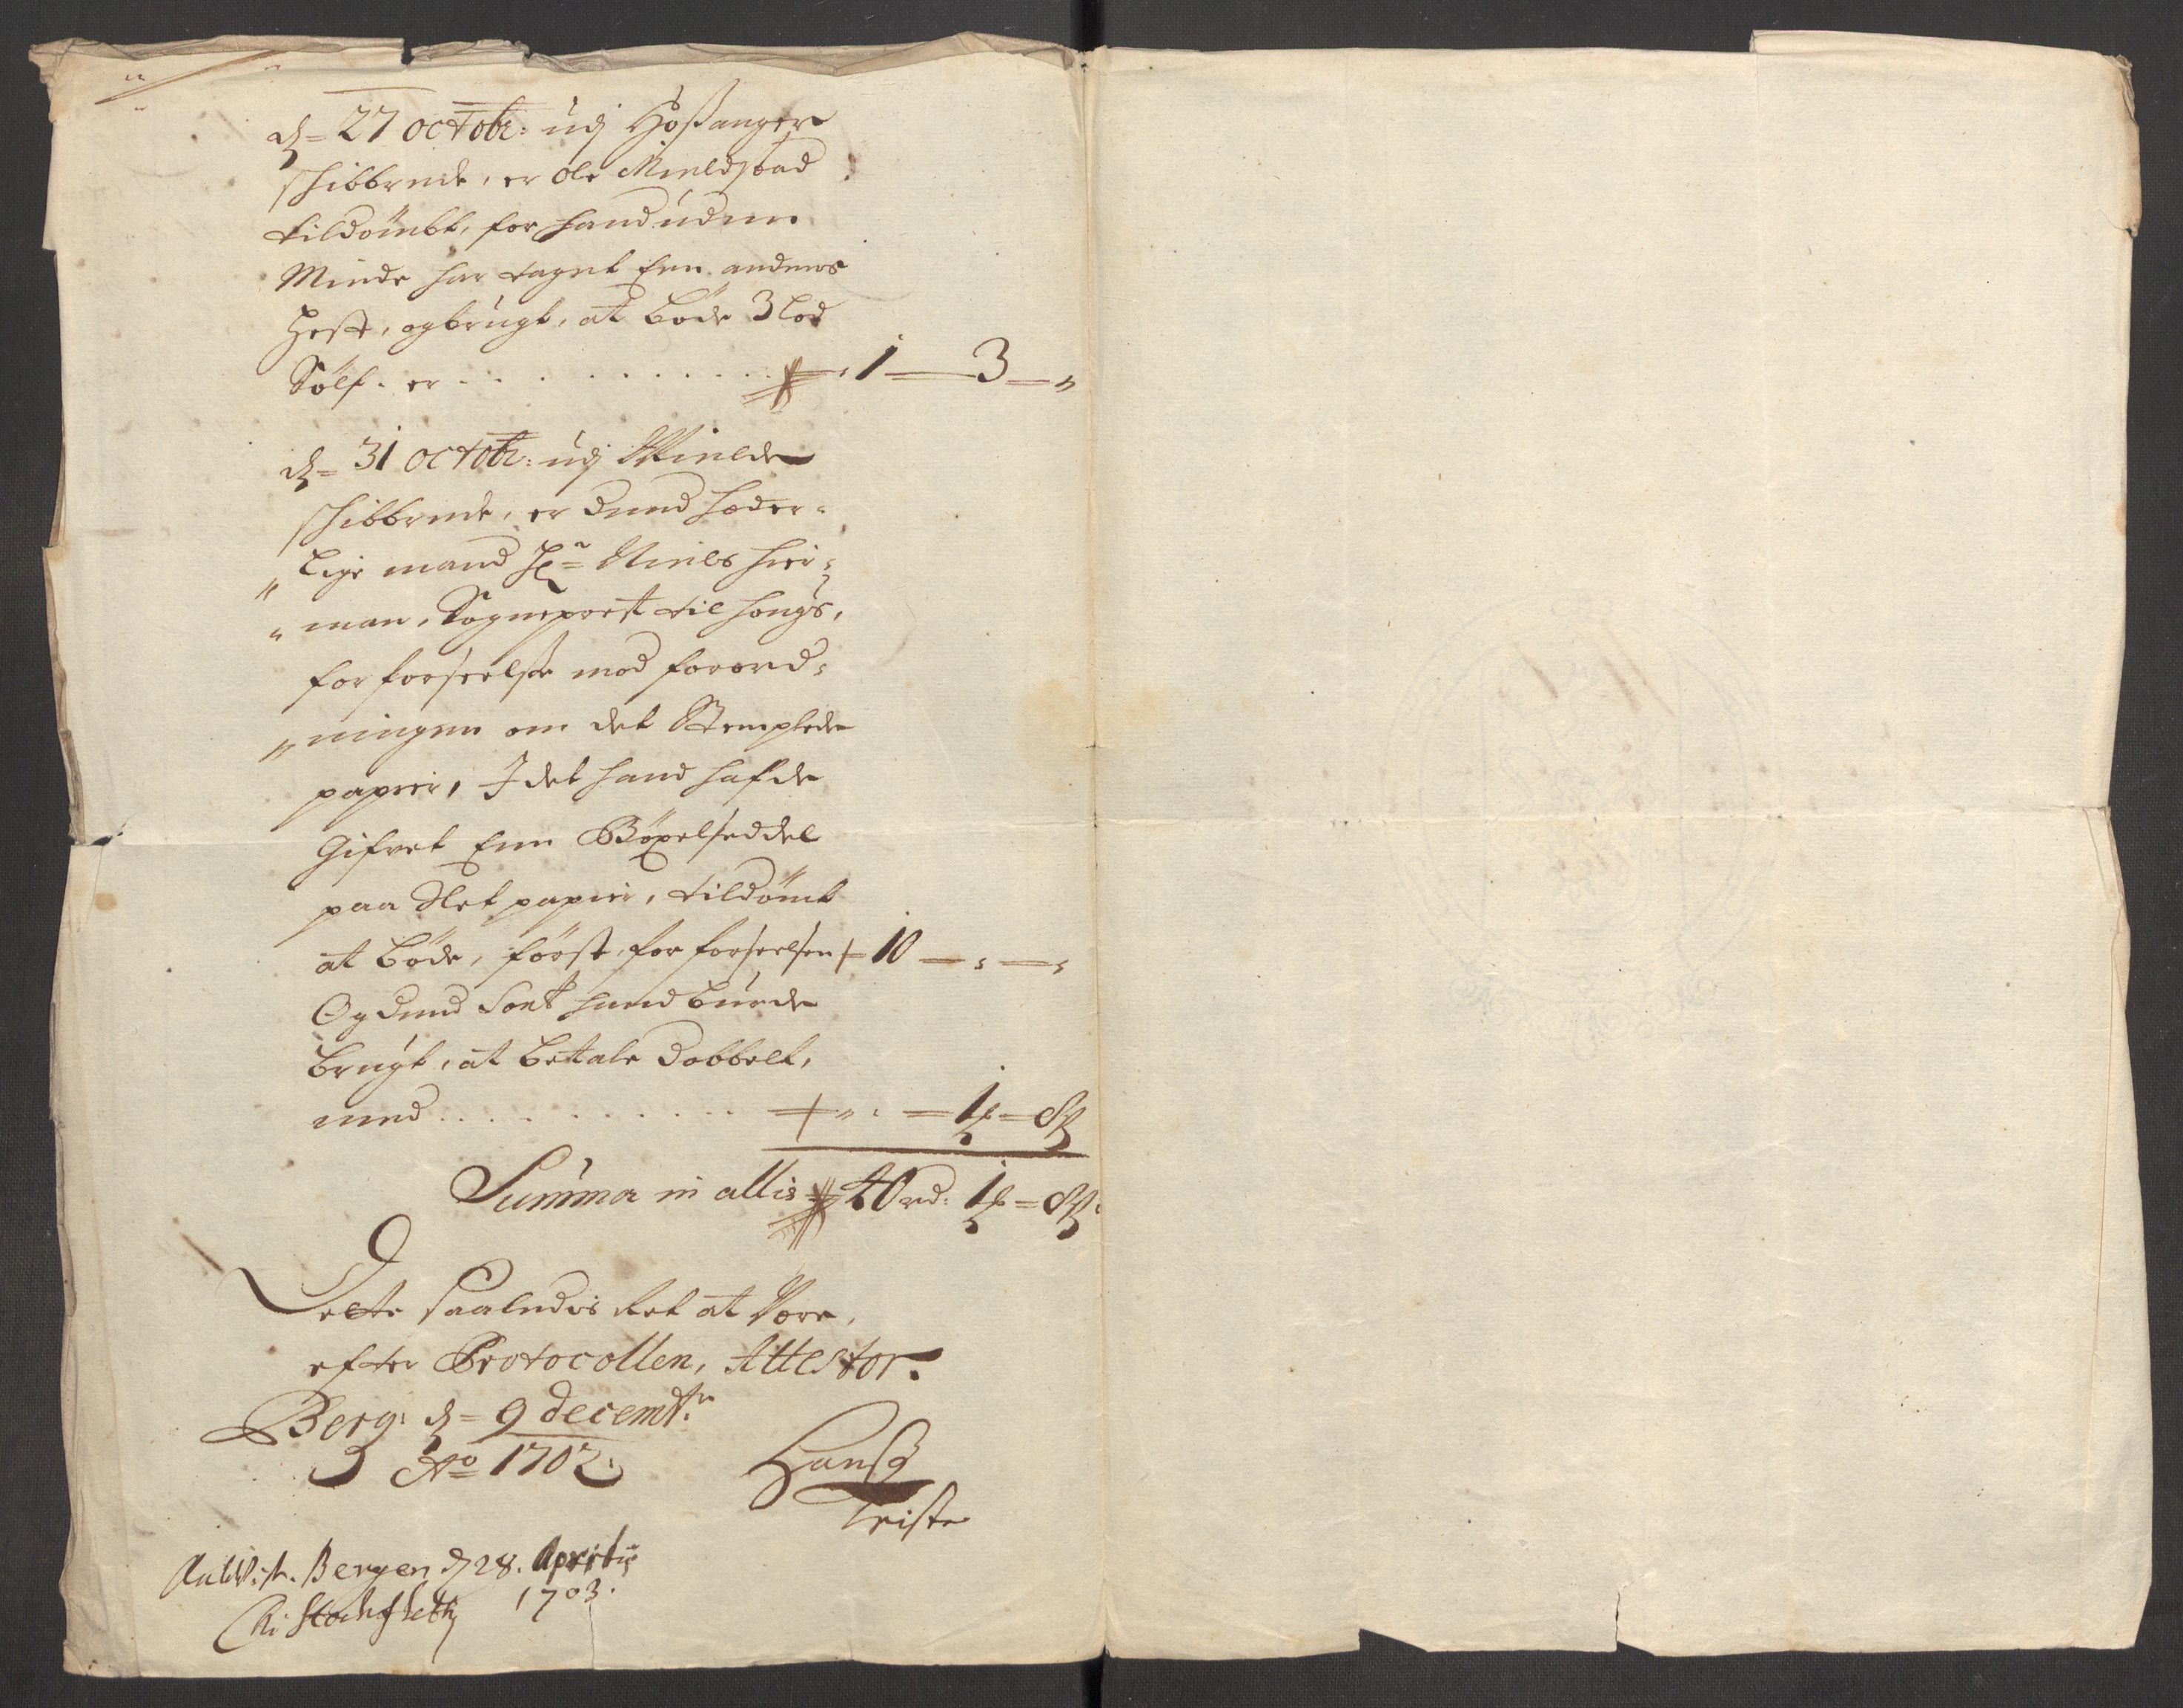 d= 27 octobr: udj Hoßanger
schibbrede, er Ole Mieldstad
tildömbt, for hand uden
Minde har taget Enn andens
Hest, og brugt, at böde 3 lod
Sölf. er . . . . . . . . . . 1 — 3 — "
d= 31 octobr: udj Mielde
schibbrede, er dend hæder=
" lige mand Hr= Niels Hier=
" man, Sogneprest til Hougs,
for forseelse mod forord=
" ningen om det Stemplede
papiir, I det hand hafde
Gifvet Enn Böxelseddel
paa Slet papiir, tildömt
at böde, först, for forseelsen 10 — " — "
Og dend Sort hand burde
brugt, at bettale dobbelt,
med . . . . . . . . . . " — 1 ꝑ — 8 ß
Summa in allis 40 rd: 1 ꝑ = 8 ß:
Dette saaledis Ret at Være,
efter Protocollen, Attestor.
Berg: d= 9 decembr:
Ao 1702.
Hanß
Teiste
Bergen d 28. Aprilis
1703.
Stockfleth